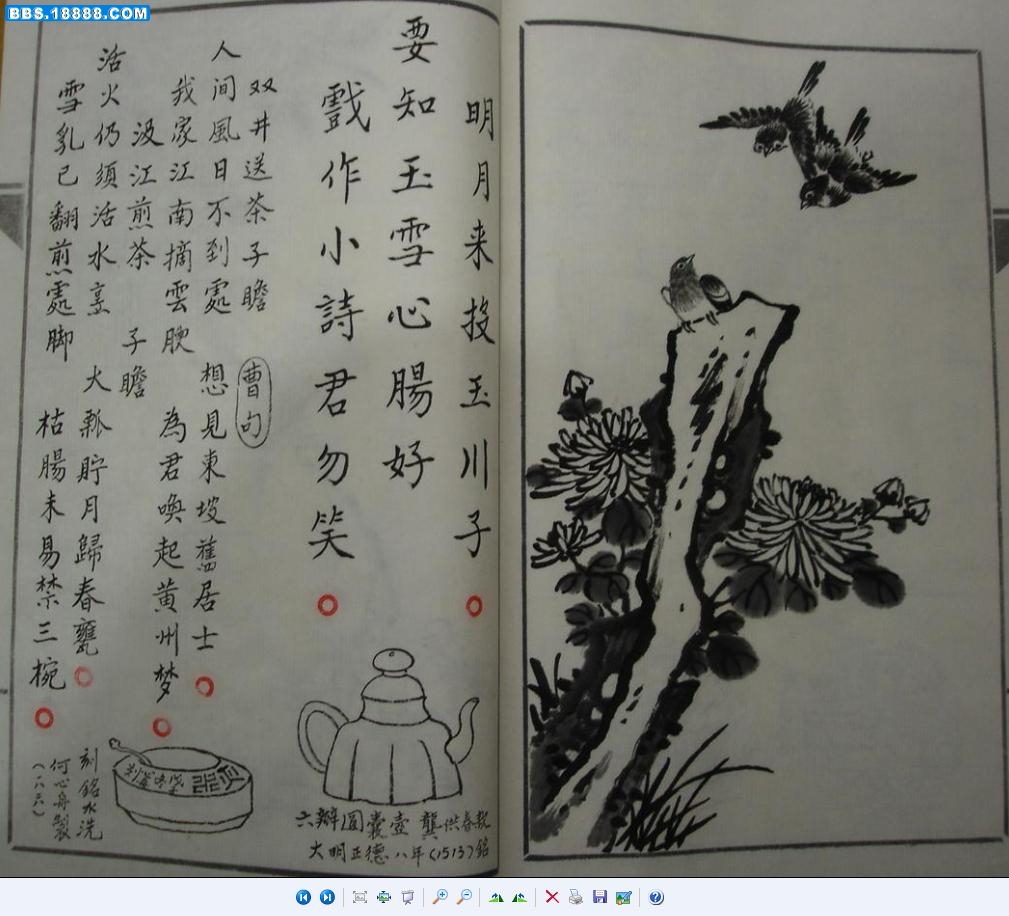 BBS.18888.COM
明月来投玉川子
要知玉雪心腸好
戲作小詩君勿笑
双井送茶子瞻 曹句
人間風日不到處 想見東坡舊居士
我家江南摘雲腴 為君喚起黄州梦
汲江煎茶 子瞻
活火仍須活水烹 大瓢貯月歸春甕
雪乳已翻煎處脚 枯腸未易禁三椀
六瓣圓囊壺 龔供春款
大明正德八年(1513)銘
刻銘水洗
何心舟製